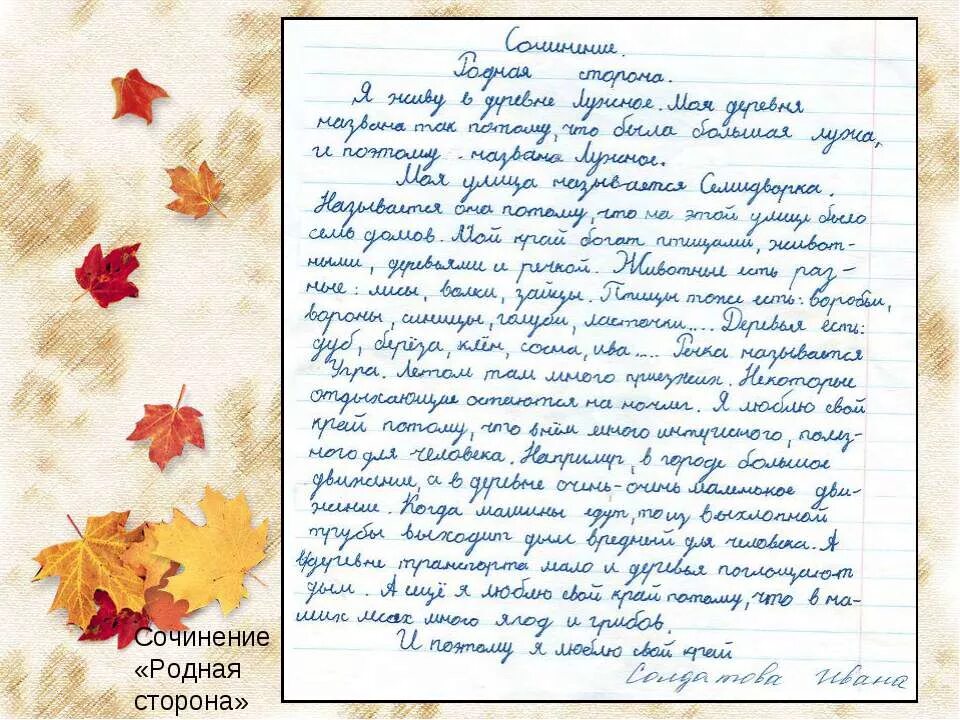 Сочинение.
Родная сторона.
Я живу в деревне Лужное. Моя деревня
названа так потому, что была большая лужа,
и поэтому названа Лужное.
Моя улица называется Семидворка.
Называется она потому, что на этой улице было
семь домов. Мой край богат птицами, живот-
ными, деревьями и речкой. Животные есть раз-
ные: лисы, волки, зайцы. Птицы тоже есть: воробьи,
вороны, синицы, голуби, ласточки.... Деревья есть:
дуб, берёза, клён, сосна, ива.... Речка называется
Угра. Летом там много приезжих. Некоторые
отдыхающие остаются на ночлег. Я люблю свой
край потому, что в нём много интересного, полез-
ного для человека. Например, в городе большое
движение, а в деревне очень-очень маленькое дви-
жение. Когда машины едут, то из выхлопной
трубы выходит дым вредный для человека. А
в деревне транспорта мало и деревья поглощают
дым. А ещё я люблю свой край потому, что в на-
ших лесах много ягод и грибов.
И поэтому я люблю свой край
Солдатова Ивана
Сочинение
«Родная
сторона»